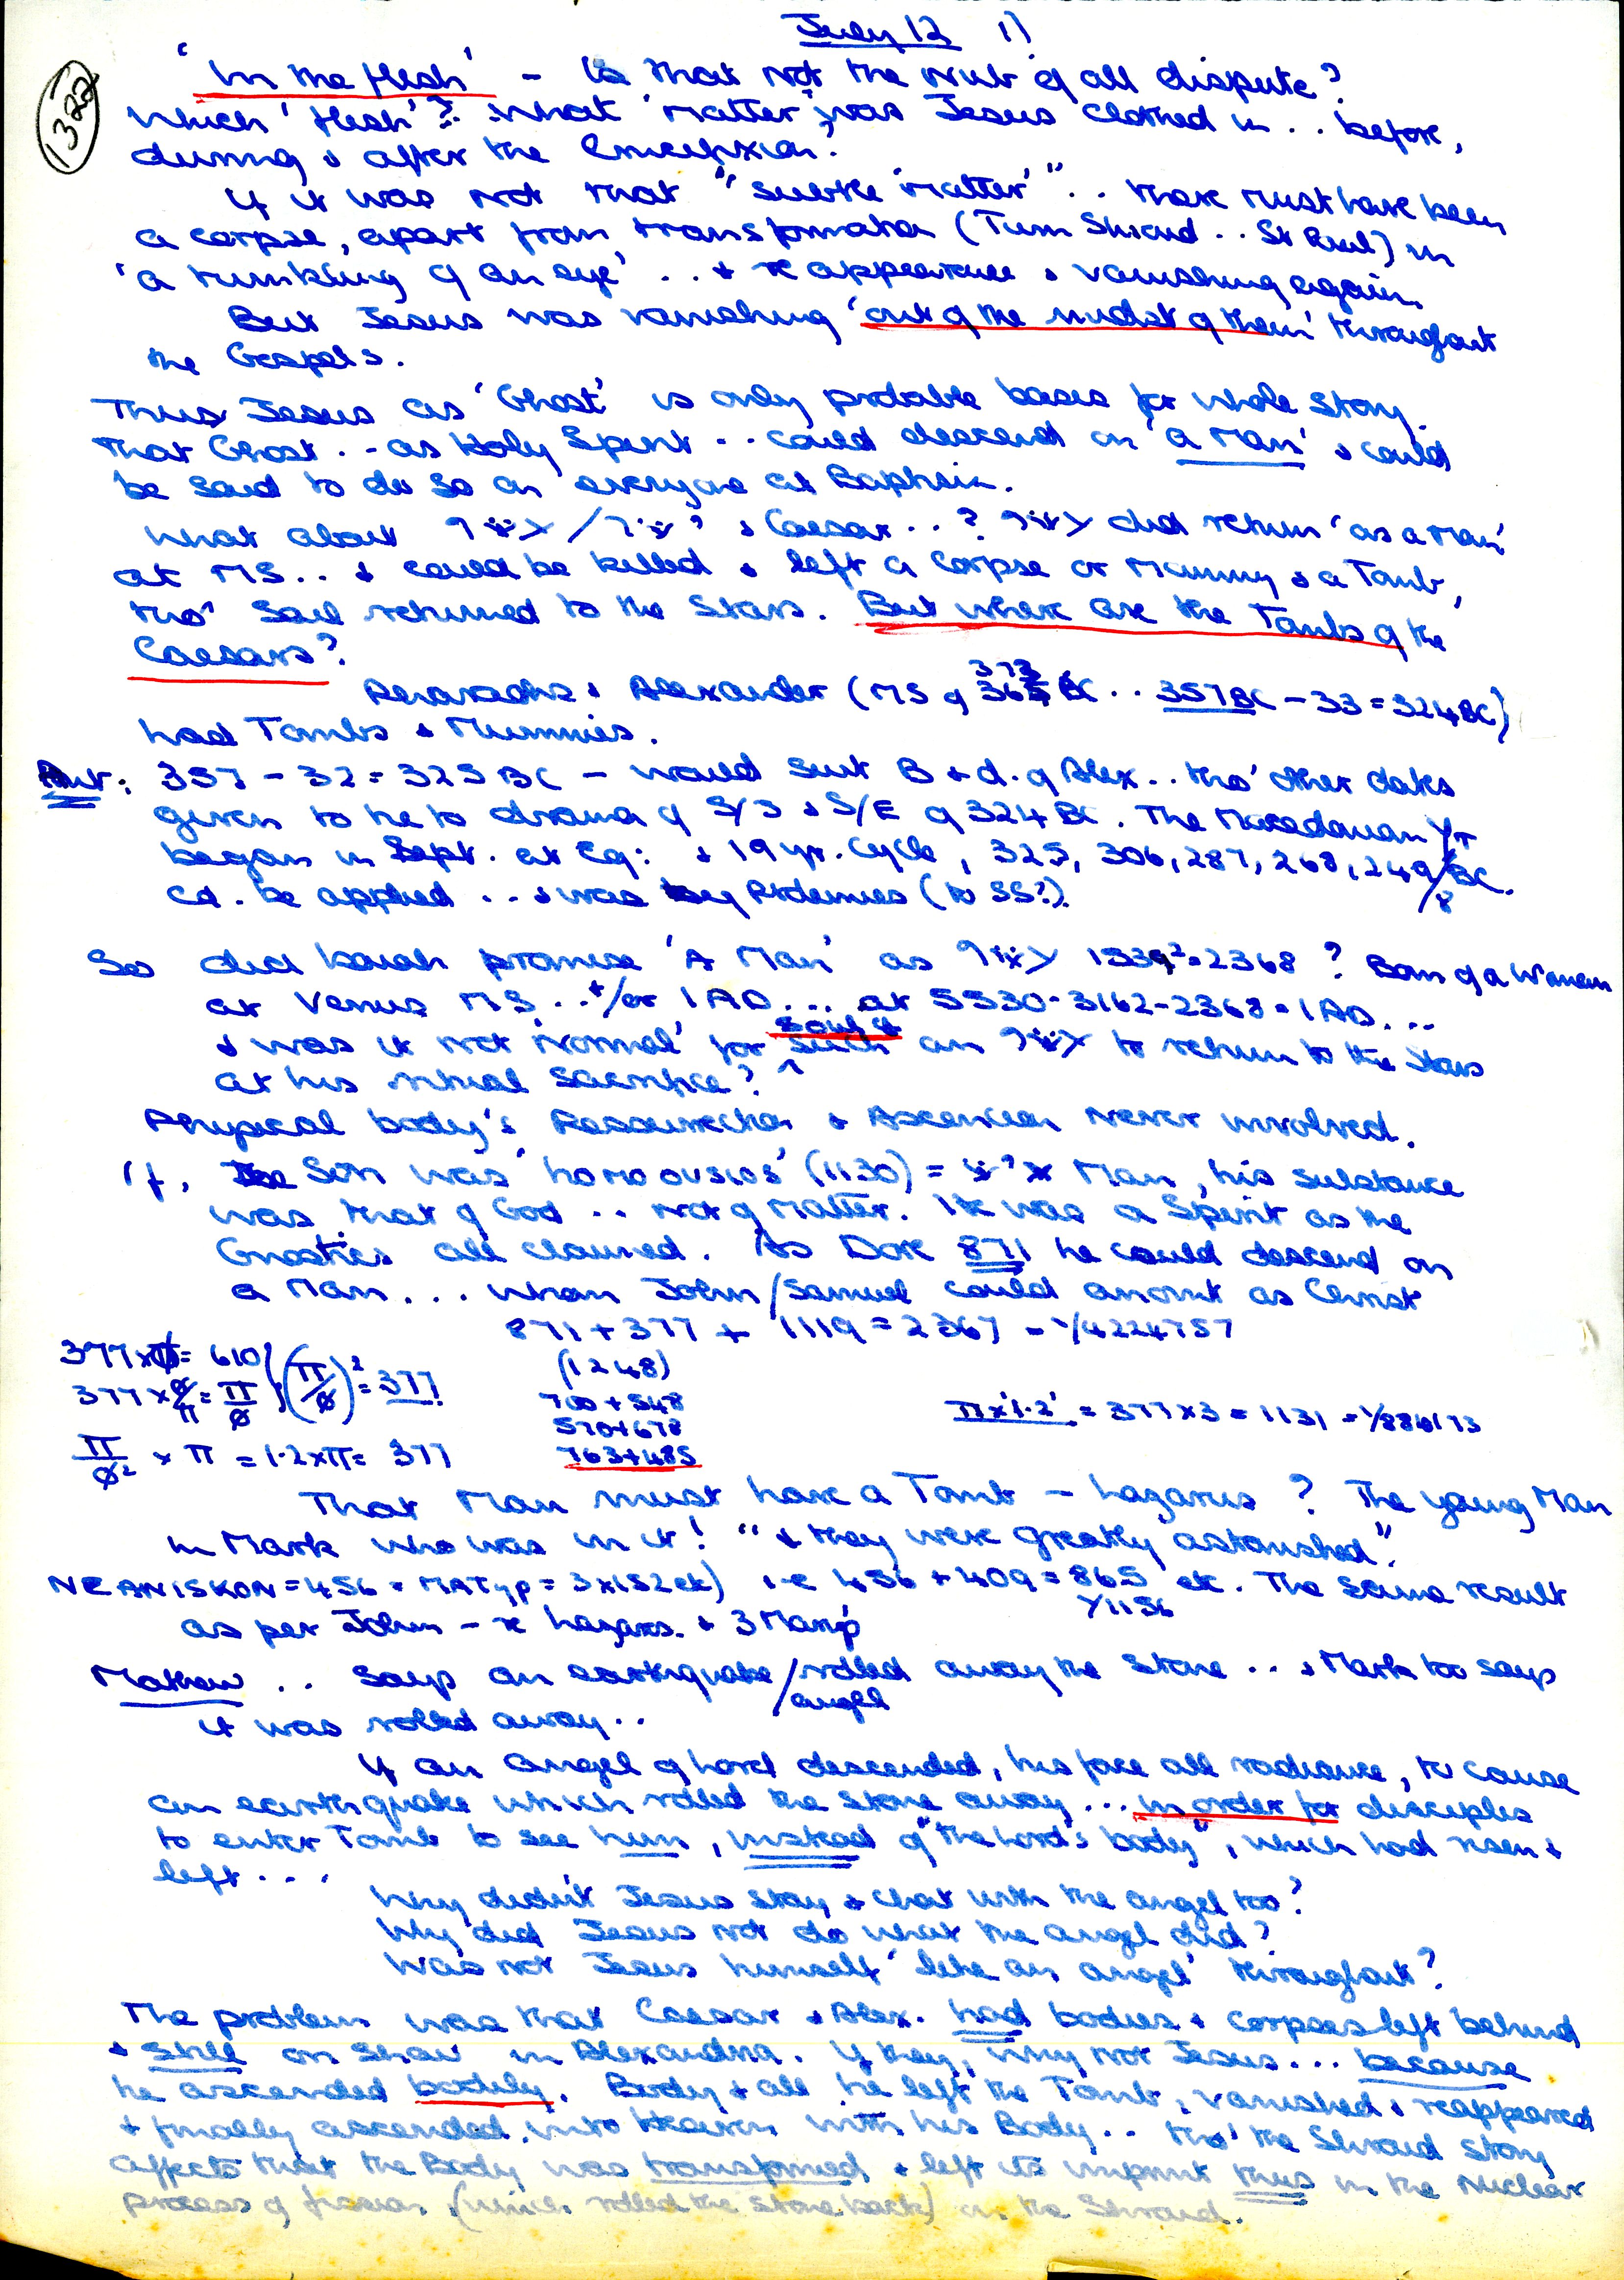 July 12 1)
1322
'In the flesh' - Is that not the nub of all dispute?
Which 'flesh'? What 'matter' was Jesus clothed in .. before,
during & after the Crucifixion?
If it was not that "subtle 'matter'" .. there must have been
a corpse, apart from transformation (Turin Shroud .. St Paul) in
'a twinkling of an eye' .. & re appearance & vanishing again.
But Jesus was vanishing 'out of the midst of them' throughout
the Gospels.
Thus Jesus as 'Ghost' is only probable bases for whole story.
That Ghost .. as Holy Spirit .. could descend on 'a Man' & could
be said to do so on everyone at Baptism.
What about & Caesar ..? did return 'as a Man'
at MS .. & could be killed & left a corpse or Mummy & a Tomb,
tho' Soul returned to the Stars. But where are the Tombs of the
Caesars?
Pharaohs & Alexander (MS of 365 BC .. 357 BC - 33 = 324 BC)
had Tombs & Mummies.
357 - 32 = 325 BC - would suit B + d. of Alex .. tho' other dates
given to tie to drama of S/3 & S/E of 324 BC. The Macedonian Yr
began in Sept. at Eq: & 19 yr. cycle, 325, 306, 287, 268, 249/8 BC.
cd. be applied .. & was by Ptolemies (to SS?).
So did Isaiah promise 'A Man' as 1539² = 2368? Born of a Woman
at Venus MS .. +/or 1 AD ... at 5530 - 3162 - 2368 = 1 AD ...
& was it not 'Normal' for such an to return to the Stars
at his ritual sacrifice?
Physical body's Ressurrection & Ascension never involved.
If, the Son was 'homoousios' (1130) = Man, his substance
was that of God .. not of Matter. He was a Spirit as the
Gnostics all claimed. As Dove 871 he could descend on
a Man ... whom John/Samuel could anoint as Christ
871 + 377 + 1119 = 2367 = 1/4224757
377 x Ø = 610 } (π/Ø)² = 377
377 x Ø/π = π/Ø
π/Ø² x π = 1.2 x π = 377
(1248)
700 + 548
570 + 678
763 + 485
π x '1.2' = 377 x 3 = 1131 = 1/884173
That Man must have a Tomb - Lazarus? The young Man
in Mark who was in it! "& they were greatly astonished".
NEANISKON = 456 = = 3 x 152 etc) i.e 456 + 409 = 865 etc. The same result
1/1156
as per John - re Lazarus. & 3 Maryp
Mathew .. says an earthquake/angel rolled away the stone .. & Mark too says
it was rolled away ..
If an angel of Lord descended, his face all radiance, to cause
an earthquake which rolled the stone away ... in order for disciples
to enter Tomb to see him, instead of "the Lord's body", which had risen &
left ...
Why didn't Jesus stay & chat with the angel too?
Why did Jesus not do what the angel did?
Was not Jesus himself 'like an angel' throughout?
The problem was that Caesar & Alex. had bodies & corpses left behind
& still on show in Alexandria. If they, why not Jesus ... because
he ascended bodily. Body & all he left the Tomb, vanished & reappeared
& finally ascended into Heaven with his Body .. tho' the Shroud story
affects that the Body was transformed & left its imprint thus in the Nuclear
process of fission (which rolled the stone back) in the Shroud.